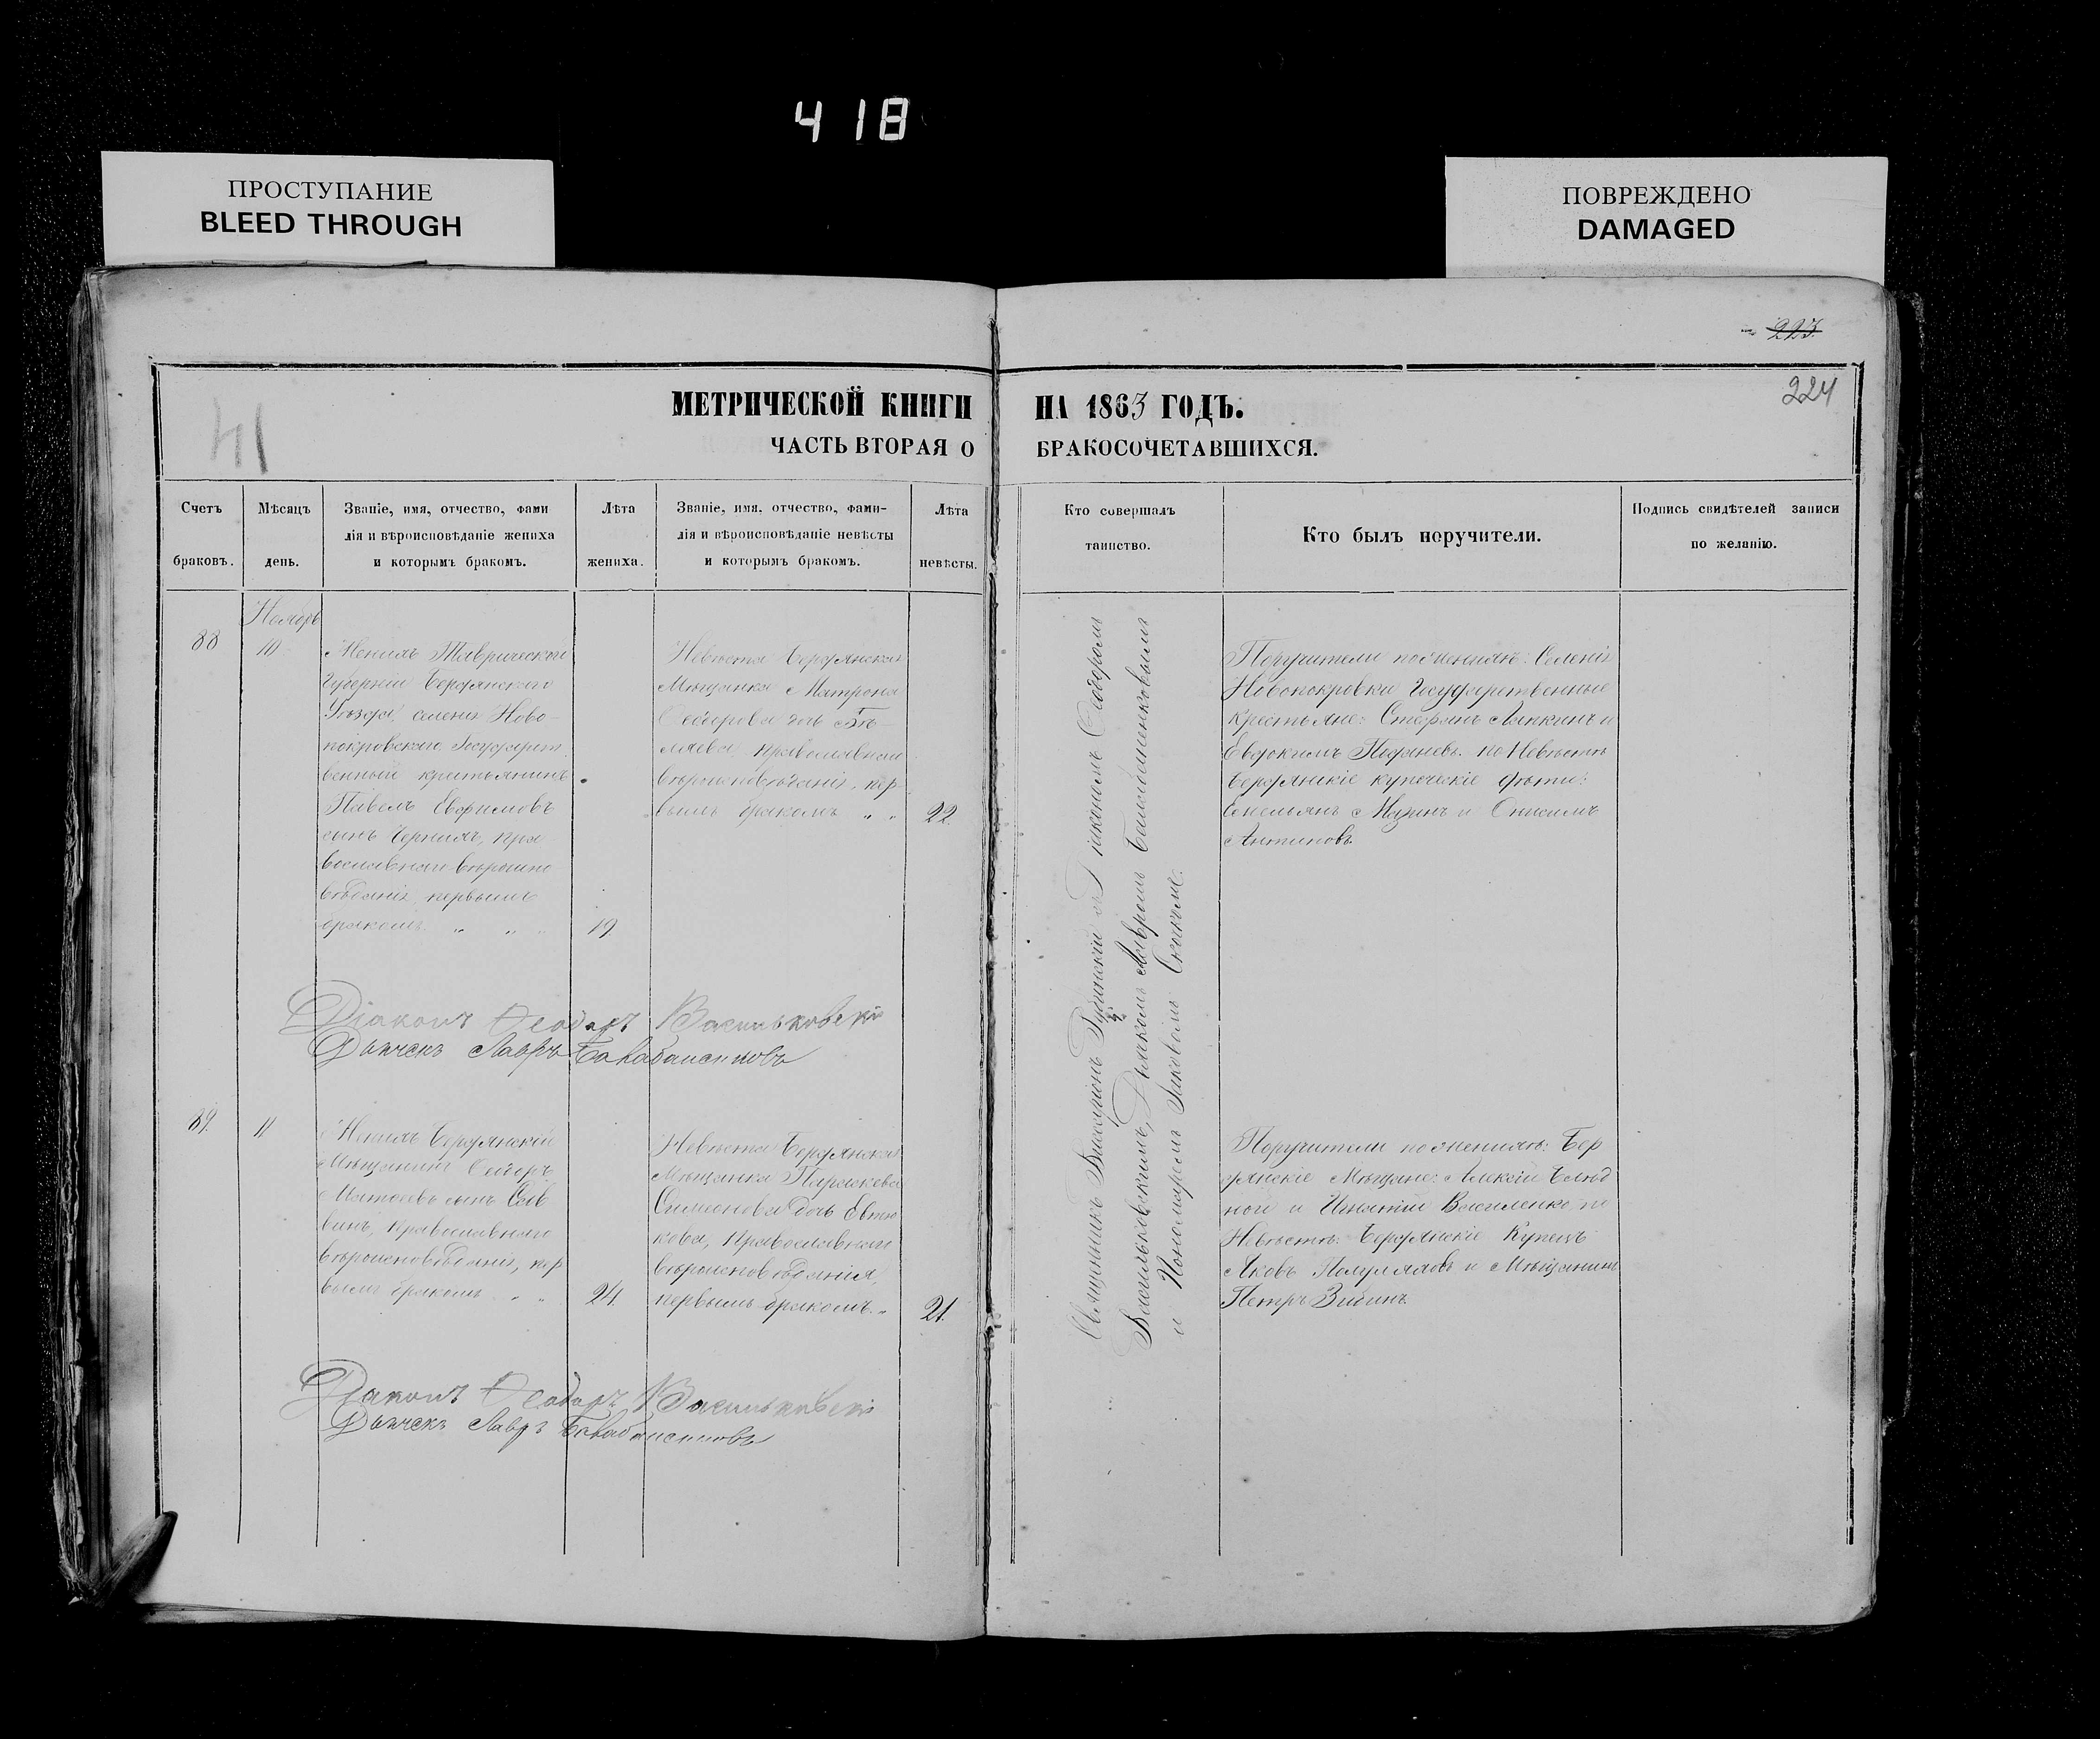 418
ПРОСТУПАНИЕ
BLEED THROUGH
ПОВРЕЖДЕНО
DAMAGED
223.
224
41
МЕТРИЧЕСКОЙ КНИГИ НА 1863 ГОДЪ.
ЧАСТЬ ВТОРАЯ О БРАКОСОЧЕТАВШИХСЯ.
Счетъ
браковъ.
Мѣсяцъ
день.
Званіе, имя, отчество, фами
лія и вѣроисповѣданіе жениха
и которымъ бракомъ.
Лѣта
жениха.
Званіе, имя. отчество, фами-
лія и вѣроисповѣданіе невѣсты
и которымъ бракомъ.
Лѣта
невѣсты.
Кто совершалъ
таинство.
Кто былъ поручители.
Подпись свидѣтелей записи
по желанію.
88
Ноябрь
10
Женихъ Таврической
Губерніи Бердянскаго
Уѣзда, селенія Ново-
покровки Государст
венный крестьянинъ
Павелъ Евфимовъ
сынъ Чернихъ, пра
вославнаго вѣроиспо
вѣданія, первымъ
бракомъ „ „
19.
Невѣста Бердянская
Мѣщанка Матрона
Ѳеодорова дочь Бѣ-
ляева православнаго
вѣроисповѣданія, пер
вымъ бракомъ „ „
22.
Священникъ Виссаріонъ Рудинскій съ Діакономъ Ѳеодоромъ
Васильковскимъ, Дьячкомъ Лавромъ Балабаненковымъ
и Пономаремъ Іаковомъ
Поручители по женихѣ: Селенія
Новопокровки Государственные
крестьяне: Стефанъ Ляпкинъ и
Евдокимъ по Невѣстѣ
Бердянскіе купеческіе дѣти:
Емельянъ Мазинъ и Онисимъ
Антиповъ.
Діаконъ Ѳеодоръ Васильковскій
Дьячекъ Лавръ Балабаненковъ
89.
11
Женихъ Бердянскій
Мѣщанинъ Ѳеодоръ
Матѳеевъ сынъ Сав
винъ, православнаго
вѣроисповѣданія, пер
вымъ бракомъ „ „
24.
Невѣста Бердянская
Мѣщанка Параскева
Симеонова дочь Евтю
кова, Православнаго
вѣроисповѣданія,
первымъ бракомъ. „
21.
Поручители по женихѣ: Бер
дянскіе Мѣщане: Алексій Блѣд
ной и Игнатій Василенко, по
Невѣстѣ: Бердянскіе Купецъ
Яковъ и Мѣщанинъ
Петръ Зибинъ.
Діаконъ Ѳеодоръ Васильковскій
Дьячекъ Лавръ Балабаненковъ